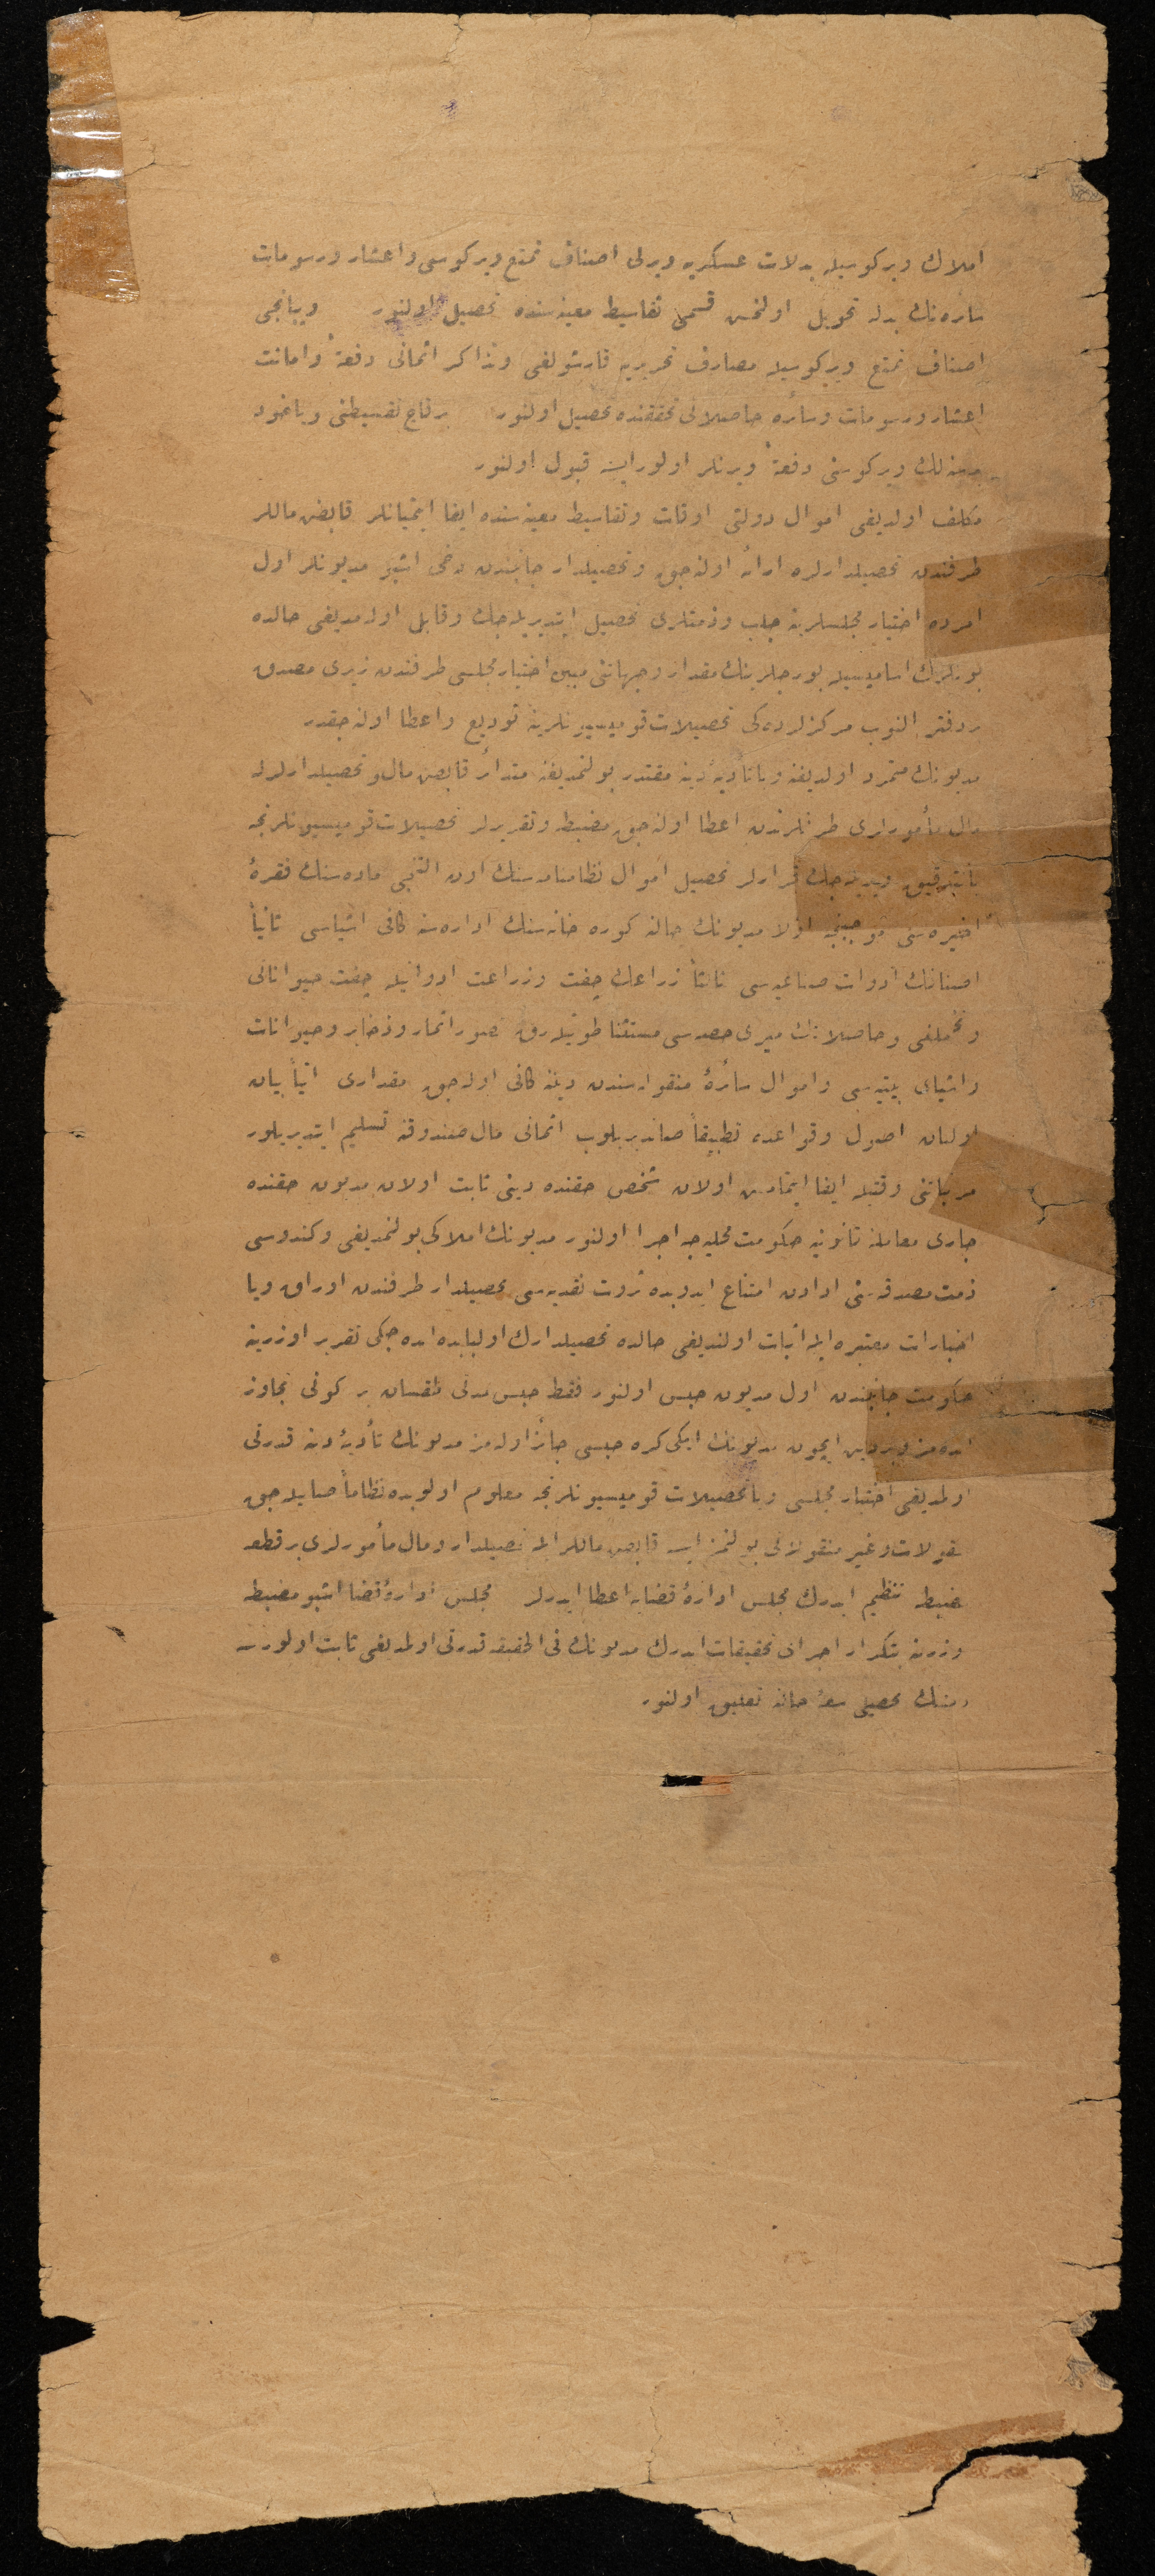 املاك ويركوسيله بدلات عسكريه ويرلى اصناف تمتع ويركوسى واعشار ورسومات
سائره‌نك بدله تحويل اولنمش قسمى تقاسيط معينه‌سنده تحصيل اولنور ويبانجى
اصناف تمتع ويركوسيله مصارف تحريريه قارشولغى وتذاكر اثمانى دفعةً وامانت
اعشار ورسومات وسائره حاصلاتى تحققنده تحصيل اولنور برقاچ تقسيطنى وياخود
سنه‌لك ويركوسنى دفعةً ويرنلر اولورايسه قبول اولنور
مكلف اولديغى اموال دولتى اوقات وتقاسيط معينه‌سنده ايفا ايتميانلر قابض ماللر
طرفندن تحصيلدارلره ارائه اوله‌جق وتحصيلدار جانبندن دخى اشبو مديونلر اول
امرده اختيار مجلسلرينه جلب وذمتلرى تحصيل ايتديريله‌جك وقابل اوله‌مديغى حالده
بونلرك اساميسيله بورجلرينك مقدار وجهاتنى مبين اختيار مجلسى طرفندن زيرى مصدق
بردفتر النوب مركزلرده‌كى تحصيلات قوميسيونلرينه توديع واعطا اوله‌جقدر
مديونك متمرد اولديغنه ويا تأديۀ دينه مقتدر بولنمديغنه متدائر قابض مال وتحصيلدارلرله
مال مأمورلرى طرفلرندن اعطا اوله‌جق مضبطه وتقريرلر تحصيلات قوميسيونلرنجه
بالتدقيق ويريله‌جك قرارلر تحصيل اموال نظامنامه‌سنك اون التنجى ماده‌سنك فقرۀ
اخيره‌سى موجبنجه اولا مديونك حالنه كوره خانه‌سنك اداره‌سنه كافى اشياسى ثانياً
اصنافك ادوات صناعيه‌سى ثالثاً زراعك چفت وزراعت ادواتيله چفت حيواناتى
وتخملغى وحاصلاتك ميرى حصه‌سى مستثنا طوتيله‌رق قصور اثمار وذخاير وحيوانات
واشياى بيتيه‌سى واموال سائرۀ منقوله‌سندن دينه كافى اوله‌جق مقدارى اتياً بيان
اولنان اصول وقواعده تطبيقاً صاتديريلوب اثمانى مال صندوقنه تسليم ايتديريلور
ويركوسنى وقتيله ايفا ايتمامش اولان شخص حقنده دينى ثابت اولان مديون حقنده
جارى معاملۀ قانونيه حكومت محليه‌جه اجرا اولنور مديونك املاكى بولنمديغى وكندوسى
ذمت مصدقه‌سنى ادادن امتناع ايدوبده ثروت نقديه‌سى تحصيلدار طرفندن اوراق ويا
اخبارات معتبره ايله اثبات اولنديغى حالده تحصيلدارك اولبابده ايده‌جكى تقرير اوزرينه
حكومت جانبندن اول مديون حبس اولنور فقط حبس مدتى طقسان بر كونى تجاوز
ايده‌مز وبر دين ايچون مديونك ايكى كره حبسى جائز اوله‌مز مديونك تأديۀ دينه قدرتى
اولمديغى اختيار مجلسى ويا تحصيلات قوميسيونلرنجه معلوم اولوبده نظاماً صاتيله‌جق
منقولات وغير منقولاتى بولنمز ايسه قابض ماللر ايله تحصيلدار ومال مأمورلرى برقطعه
مضبطه تنظيم ايدرك مجلس ادارۀ قضايه اعطا ايدرلر مجلس ادارۀ قضا اشبو مضبطه
اوزرينه بتكرار اجراى تحقيقات ايدرك مديونك فى الحقيقه قدرتى اولمديغى ثابت اولورسه
دينك تحصيلى سعۀ حالنه تعليق اولنور